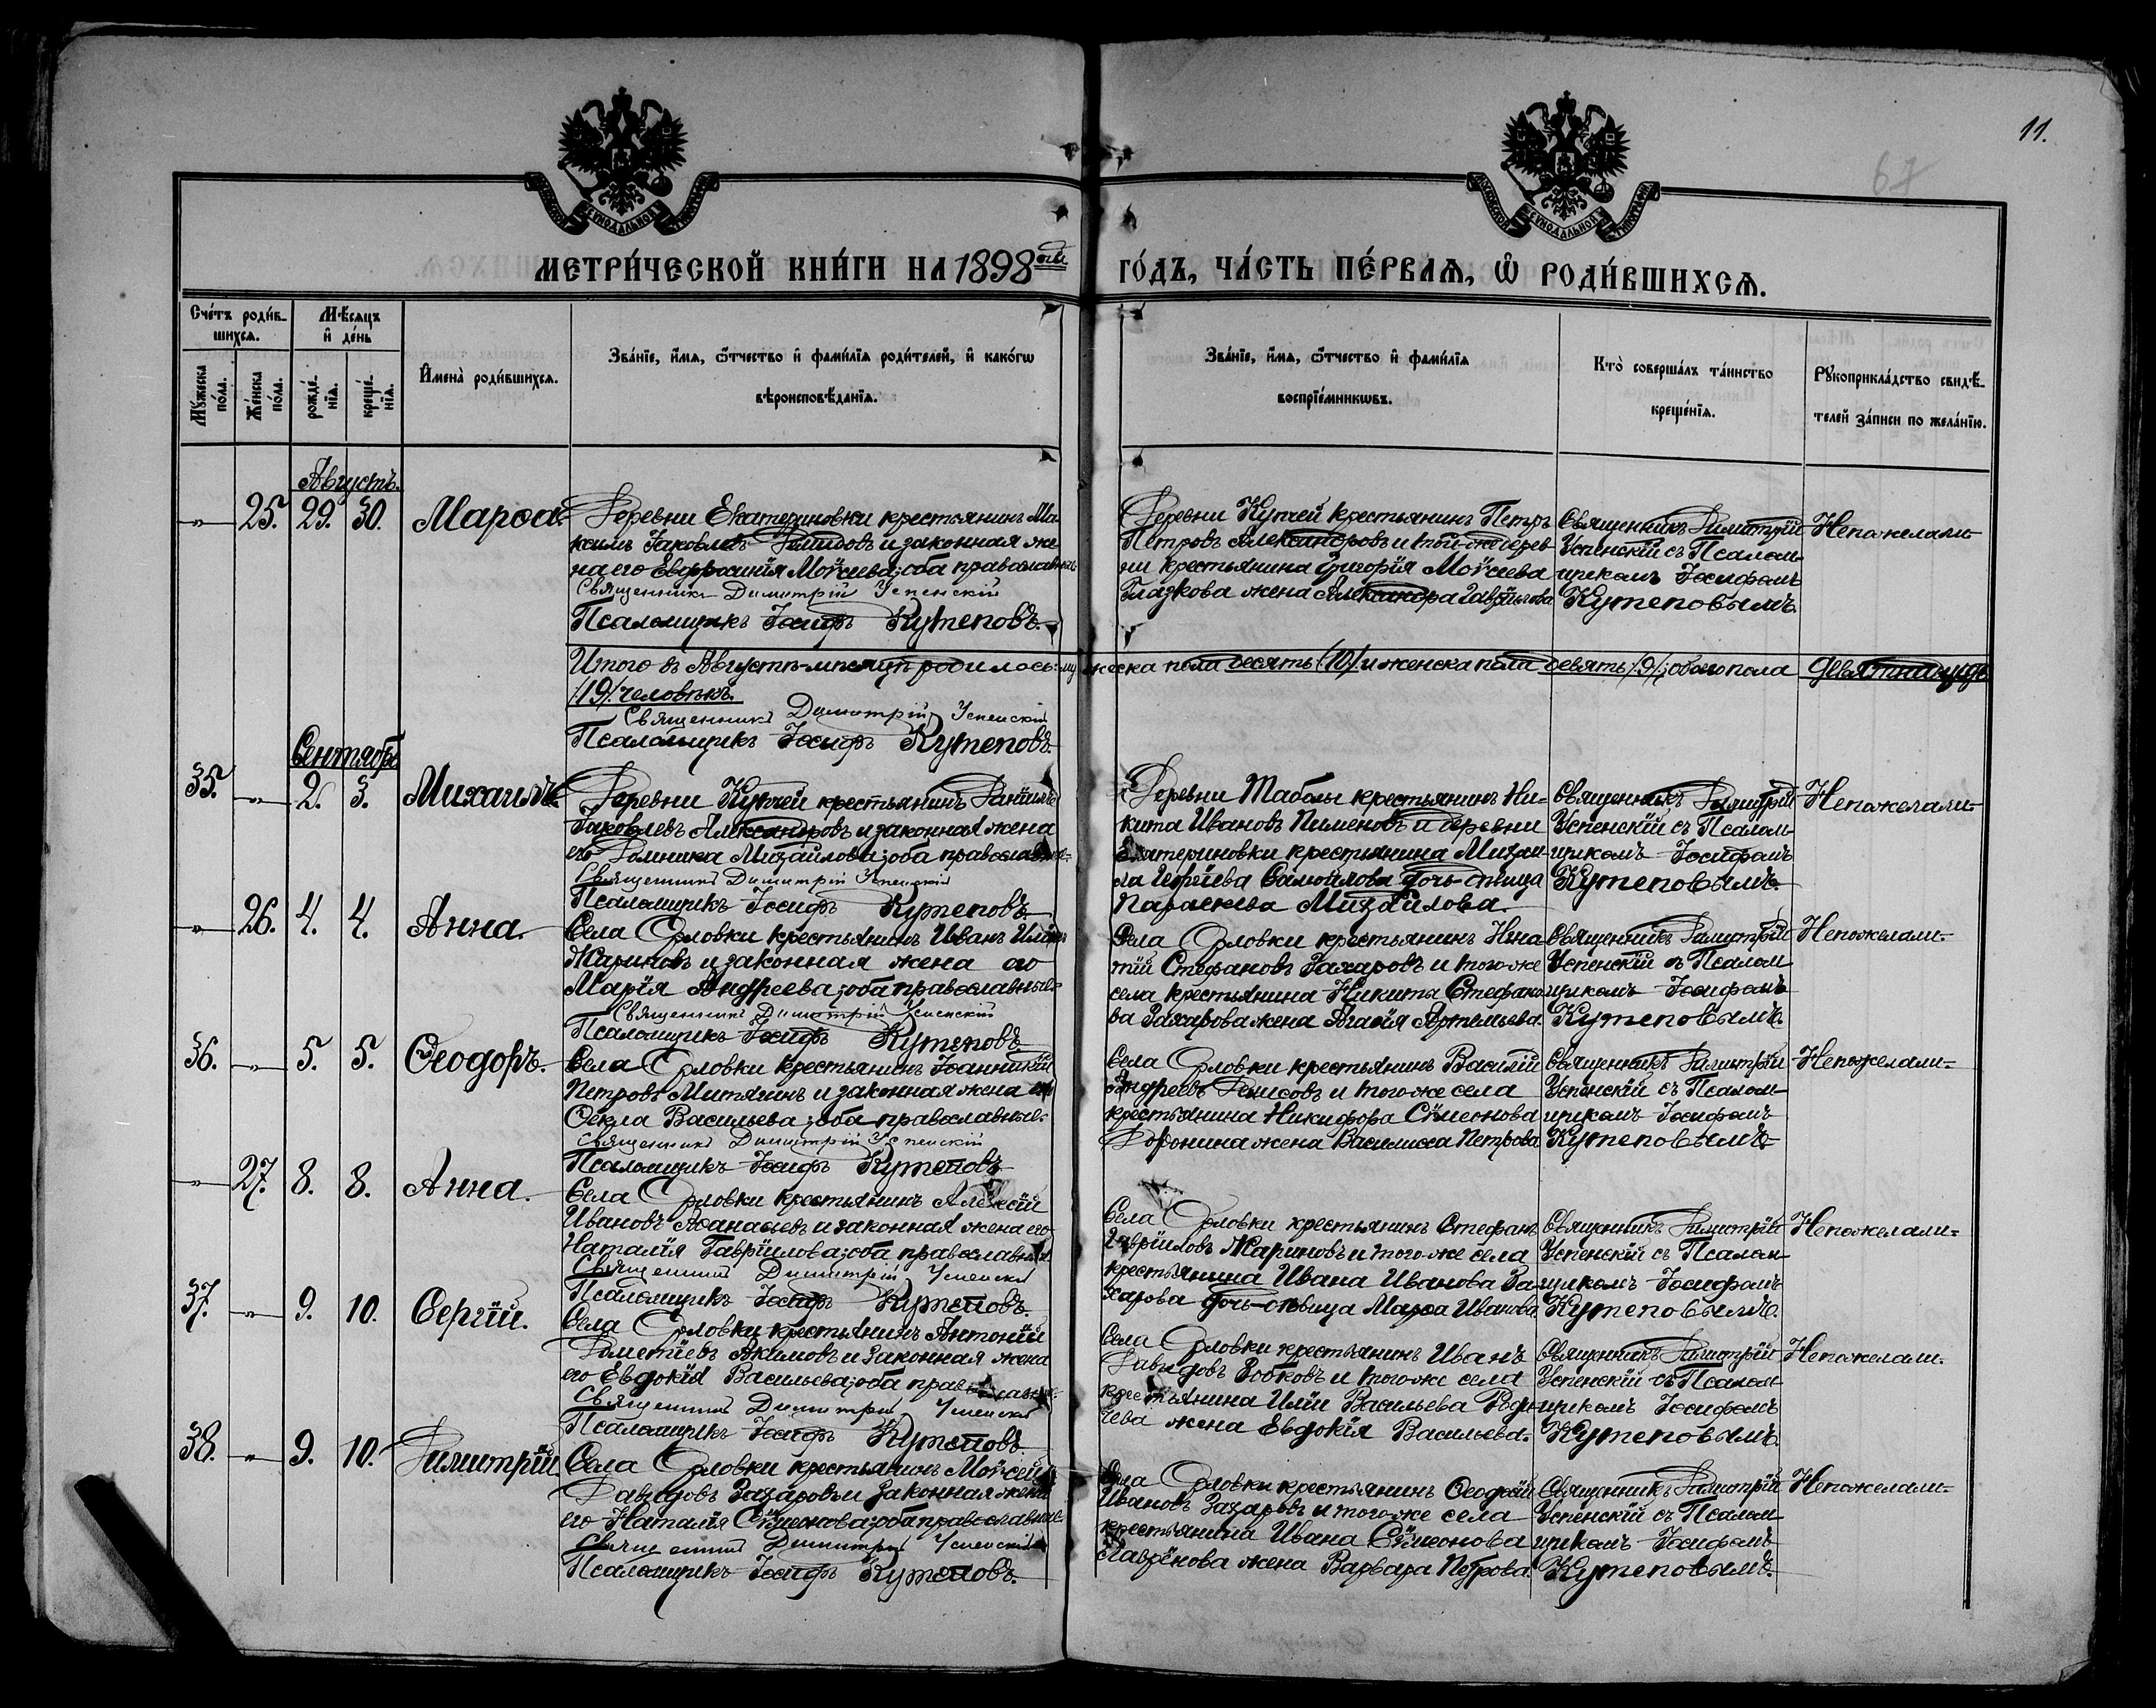 11.
67
МОСКОВСКОЙ СѴНОДАЛЬНОЙ ТИПОГРАФІИ
МОСКОВСКОЙ СѴНОДАЛЬНОЙ ТИПОГРАФІИ
МЕТРИ́ЧЕСКОЙ КНИ́ГИ НА 1898 ой ГО́ДЪ, ЧА́СТЬ ПЕ́РВАѦ, Ѽ РОДИ́ВШИХСѦ.
Сче́тъ роди́в-
шихсѧ.
Мѣ́сяцъ
и҆ де́нь
Мꙋ́жеска по́ла.
Же́нска по́ла.
рожде́-
нїѧ.
креще́-
нїѧ.
И҆мена̀ роди́вшихсѧ.
Зва́нїе, и҆́мѧ, ѻ҆́тчество и҆ фами́лїѧ роди́телей, и҆ како́гѡ
вѣроисповѣ́данїѧ.
Зва́нїе, и҆́мѧ, ѻ҆́тчество и҆ фами́лїѧ
воспрїе́мникѡвъ.
Кто̀ соверша́лъ та́инство
креще́нїѧ.
Рꙋкоприкла́дство свидѣ́-
телей за́писи по жела́нїю.
Августъ.
" 25. 29. 30. Марѳа.
Деревни Екатериновки крестьянинъ Ма-
ксимъ Іаковлевъ Демидовъ и законная же-
на его Евфросинія Моисеева; оба православные.
Священникъ Димитрій Успенскій
Псаломщикъ Іосифъ Кутеповъ.
Деревни Купчей крестьянинъ Петръ
Петровъ Александровъ и той-же дерев-
ни крестьянина Григорія Моисеева
Глазкова жена Александра Гавріилова
Священникъ Димитрій
Успенскій съ Псалом-
щикомъ Іосифомъ
Кутеповымъ.
Непожелали
Итого въ Августѣ-мѣсяцѣ родилось: мужеска пола десять (10) и женска пола девять (9); обоего пола девятнадцать
(19) человѣкъ.
Священникъ Димитрій Успенскій
Псаломщикъ Іосифъ Кутеповъ.
Сентябрь
35. " 2. 3. Михаилъ.
Деревни Купчей крестьянинъ Даніилъ
Іаковлевъ Александровъ и законная жена
его Домника Михайлова; оба православные.
Священникъ Димитрій Успенскій
Псаломщикъ Іосифъ Кутеповъ.
Деревни Таболы крестьянинъ Ни-
кита Ивановъ Пименовъ и деревни
Екатериновки крестьянина Михаи-
ла Самойлова дочь-дѣвица
Параскева Михайлова.
Священникъ Димитрій
Успенскій съ Псалом-
щикомъ Іосифомъ
Кутеповымъ.
Непожелали
" 26. 4. 4. Анна.
Села Орловки крестьянинъ Иванъ
Жариковъ и законная жена его
Марія Андреева; оба православные.
Священникъ Димитрій Успенскій
Псаломщикъ Іосифъ Кутеповъ
Села Орловки крестьянинъ Игна-
тій Стефановъ Захаровъ и того-же
села крестьянина Никиты Стефано-
ва Захарова жена Агаѳія Артемьева.
Священникъ Димитрій
Успенскій съ Псалом
щикомъ Іосифомъ
Кутеповымъ.
Непожелали.
36. " 5. 5. Ѳеодоръ.
Села Орловки крестьянинъ Іоанникій
Петровъ Митягинъ и законная жена его
Ѳекла Васильева; оба православные.
Священникъ Димитрій Успенскій
Псаломщикъ Іосифъ Кутеповъ
Села Орловки крестьянинъ Василій
Андреевъ Денисовъ и того-же села
крестьянина Никифора Сѵмеонова
Доронина жена Василисса Петрова
Священникъ Димитрій
Успенскій съ Псалом-
щикомъ Іосифомъ
Кутеповымъ
Непожелали
" 27. 8. 8. Анна.
Села Орловки крестьянинъ Алексій
Ивановъ Аѳанасьевъ и законная жена его
Наталія Гавріилова; оба православные
Священникъ Димитрій Успенскій
Псаломщикъ Іосифъ Кутеповъ.
Села Орловки крестьянинъ Стефанъ
Гавріиловъ Жариковъ и того-же села
крестьянина Ивана Иванова За-
харова дочь-дѣвица Марѳа Иванова
Священникъ Димитрій
Успенскій съ Псалом-
щикомъ Іосифомъ
Кутеповымъ.
Непожелали
37. " 9. 10. Сергій.
Села Орловки крестьянинъ Антоній
Дометіевъ Акимовъ и законная жена
его Евдокія Васильева; оба православные
Священникъ Димитрій Успенскій
Псаломщикъ Іосифъ Кутеповъ
Села Орловки крестьянинъ Иванъ
Давидовъ Бобковъ и того-же села
крестьянина Иліи Васильева
жена Евдокія Васильева.
Священникъ Димитрій
Успенскій съ Псалом-
щикомъ Іосифомъ
Кутеповымъ.
Непожелали.
38. " 9. 10. Димитрій.
Села Орловки крестьянинъ Моисей
Давидовъ Захаровъ и законная жена
его Наталія Сѵмеонова; оба православные
Священникъ Димитрій Успенскій
Псаломщикъ Іосифъ Кутеповъ.
Села Орловки крестьянинъ
Ивановъ Захаровъ и того-же села
крестьянина Ивана Сѵмеонова
Лаврёнова жена Варвара Петрова.
Священникъ Димитрій
Успенскій съ Псалом
щикомъ Іосифомъ
Кутеповымъ.
Непожелали